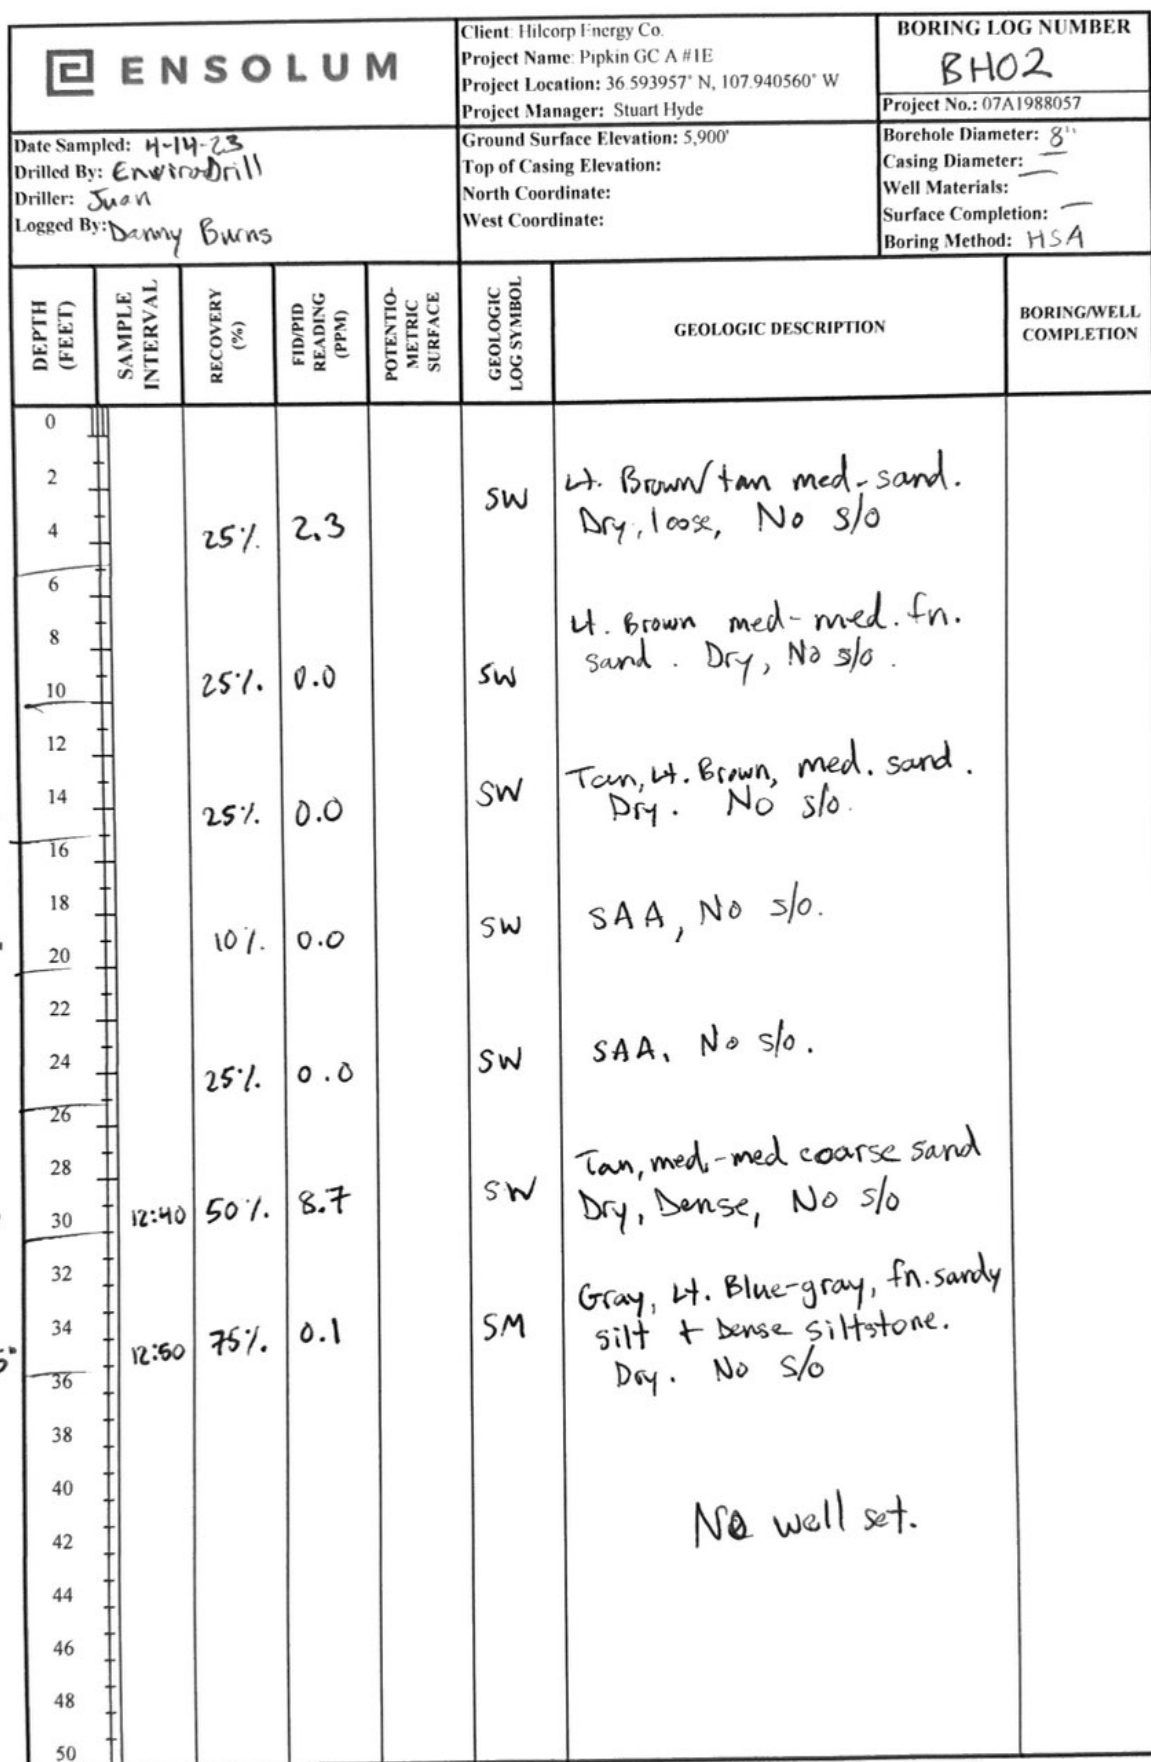 ENSOLUM
Client: Hilcorp Energy Co.
Project Name: Pipkin GC A #1E
Project Location: 36.593957° N, 107.940560° W
Project Manager: Stuart Hyde
BORING LOG NUMBER
BH02
Project No.: 07A1988057
Date Sampled: 4-14-23
Drilled By: EnviroDrill
Driller: Juan
Logged By: Danny Burns
Ground Surface Elevation: 5,900'
Top of Casing Elevation:
North Coordinate:
West Coordinate:
Borehole Diameter: 8"
Casing Diameter: —
Well Materials: —
Surface Completion: —
Boring Method: HSA
DEPTH (FEET)
SAMPLE INTERVAL
RECOVERY (%)
FID/PID READING (PPM)
POTENTIO-METRIC SURFACE
GEOLOGIC LOG SYMBOL
GEOLOGIC DESCRIPTION
BORING/WELL COMPLETION
0
2
4
25%. 2.3 SW Lt. Brown/tan med-sand.
Dry, loose, No s/o
6
8
10
25%. 0.0 SW Lt. Brown med-med. fn.
sand. Dry, No s/o.
12
14
25%. 0.0 SW Tan, Lt. Brown, med. sand.
Dry. No s/o.
16
18
20
10%. 0.0 SW SAA, No s/o.
22
24
25%. 0.0 SW SAA, No s/o.
26
28
30
12:40 50%. 8.7 SW Tan, med.-med coarse sand
Dry, Dense, No s/o
32
34
12:50 75%. 0.1 SM Gray, Lt. Blue-gray, fn. sandy
silt + Dense siltstone.
Dry. No s/o
36
38
40
42
No well set.
44
46
48
50